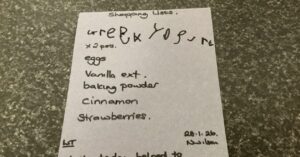 Shopping List.
Greek Yogurt
x 2 pots.
eggs
Vanilla ext.
baking powder
Cinnamon
Strawberries.
28.1.26.
helped to